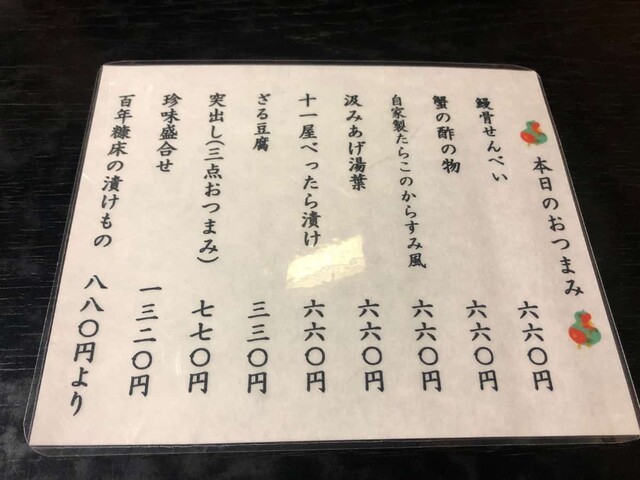 本日のおつまみ
鰻骨せんべい 六六〇円
蟹の酢の物 六六〇円
自家製たらこのからすみ風 六六〇円
汲みあげ湯葉 六六〇円
十一屋べったら漬け 六六〇円
ざる豆腐 三三〇円
突出し(三点おつまみ) 七七〇円
珍味盛合せ 一三二〇円
百年糠床の漬けもの 八八〇円より